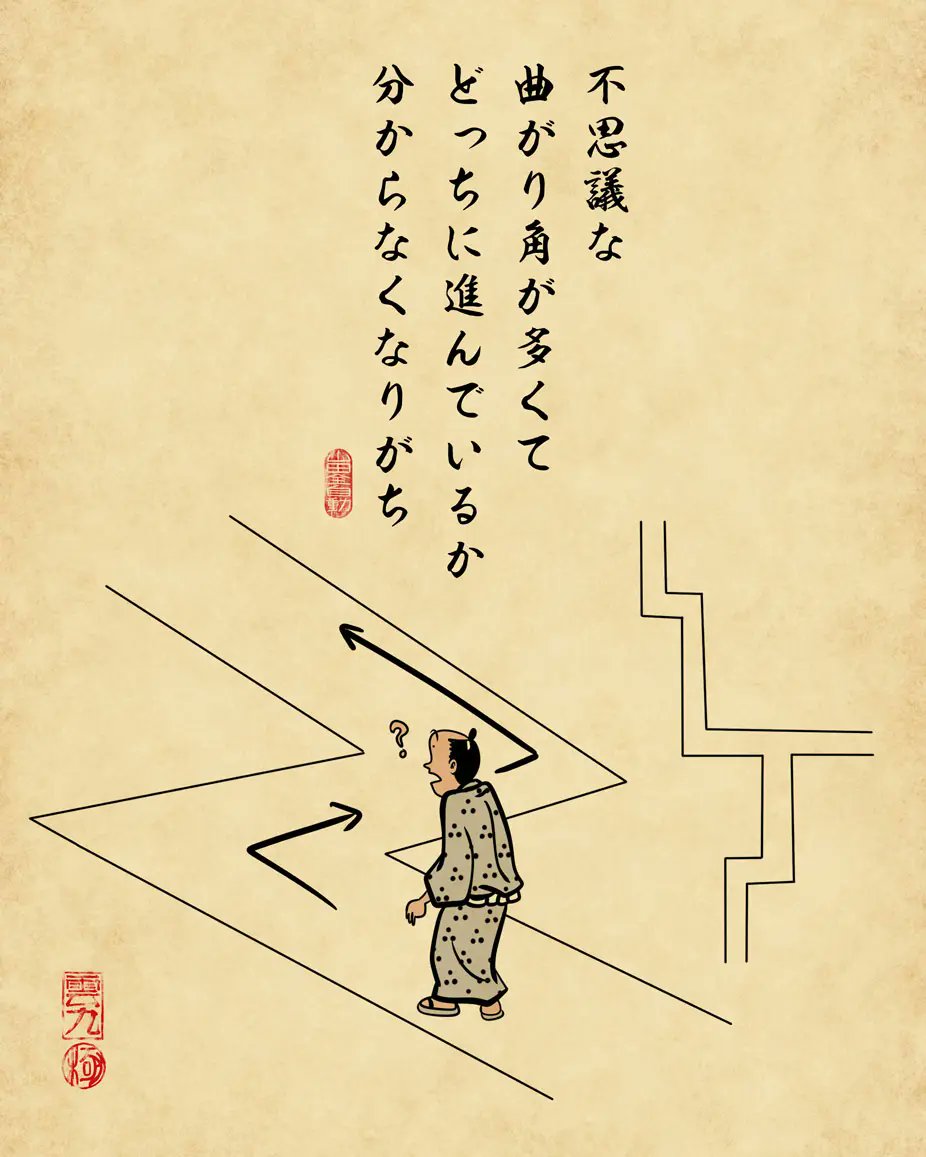 不思議な
曲がり角が多くて
どっちに進んでいるか
分からなくなりがち
?